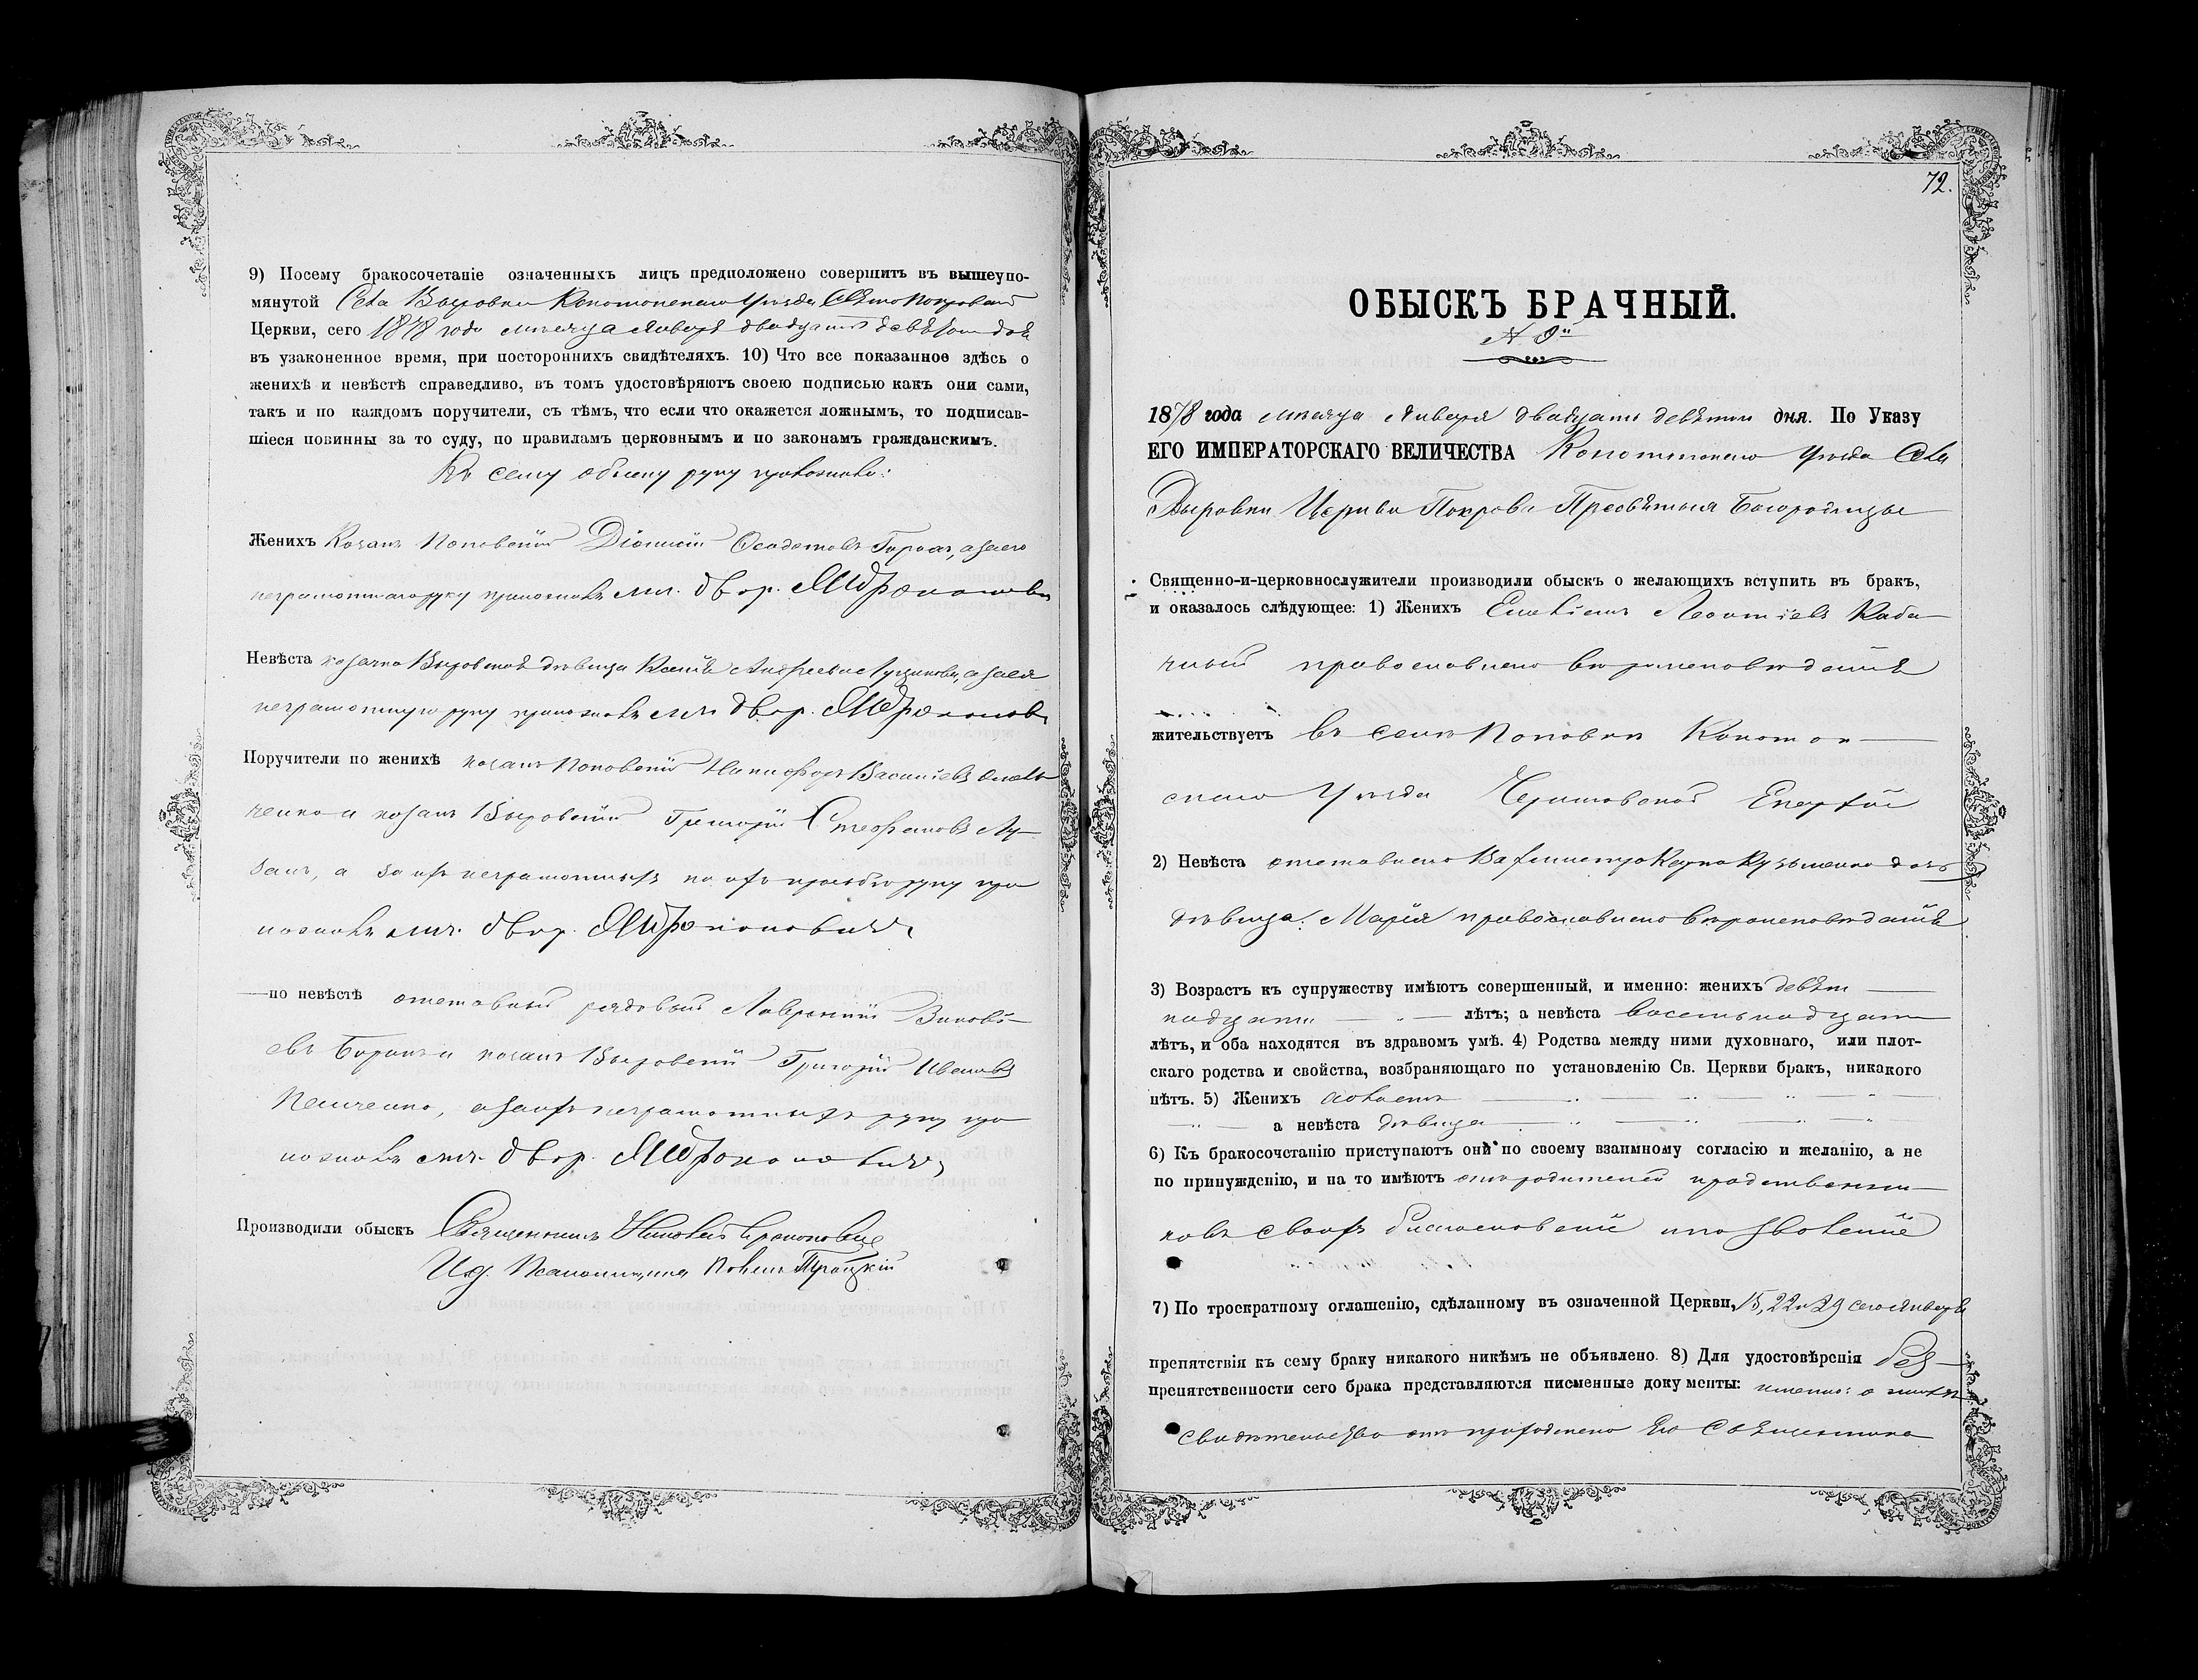 9) Посему бракосочетаніе означенныхъ лицъ предположено совершить въ вышеупо-
мянутой Села Выровки Конотопскаго уѣзда Свято Покровской
Церкви, сего 1878 года мѣсяца Января двадцать девятаго дня
въ узаконенное время, при постороннихъ свидѣтеляхъ. 10) Что все показанное здѣсь о
женихѣ и невѣстѣ справедливо, въ томъ удостовѣряютъ своею подписью какъ они сами,
такъ и по каждомъ поручители, съ тѣмъ, что если что окажется ложнымъ, то подписав-
шіеся повинны за то суду, по правиламъ церковнымъ и по законамъ гражданскимъ.
Къ сему обыску руку приложили:
Женихъ Козакъ Поповскій Діонисій а за его
неграмотнаго руку приложилъ двор.
Невѣста козачка дѣвица Ксенія Андреева а за ея
неграмотную руку приложилъ двор.
Поручители по женихѣ козакъ Поповскій Никифоръ Васильевъ Омель
ченко и козакъ Выровскій Григорій Стефановъ Лу-
занъ, а за ихъ неграмотныхъ по ихъ просьбѣ руку при
ложилъ двор.
—по невѣстѣ отставный рядовый Лаврентій
евъ и козакъ Выровскій Григорій Ивановъ
а за ихъ неграмотныхъ руку при
ложилъ двор.
Производили обыскъ Священникъ Николай
И. д. Псаломщика Троицкій
72.
ОБЫСКЪ БРАЧНЫЙ.
1878 года мѣсяца Января двадцать девятаго дня. По Указу
ЕГО ИМПЕРАТОРСКАГО ВЕЛИЧЕСТВА Конотопскаго уѣзда Села
Выровки Церкви Покрова Пресвятыя Богородицы
Священно-и-церковнослужители производили обыскъ о желающихъ вступить въ бракъ,
и оказалось слѣдующее: 1) Женихъ Леонтіевъ Каба-
чный православнаго вѣроисповѣданія
жительствуетъ въ селѣ Поповкѣ Конотоп-
скаго уѣзда Черниговской Епархіи
2) Невѣста отставнаго Кузьменко дочь
дѣвица Марія православнаго вѣроисповѣданія
3) Возрастъ къ супружеству имѣютъ совершенный, и именно: женихъ девят
надцати лѣтъ; а невѣста восемьнадцати
лѣтъ, и оба находятся въ здравомъ умѣ. 4) Родства между ними духовнаго, или плот-
скаго родства и свойства, возбраняющаго по установленію Св. Церкви бракъ, никакого
нѣтъ. 5) Женихъ холостъ
а невѣста дѣвица
6) Къ бракосочетанію приступаютъ они по своему взаимному согласію и желанію, а не
по принужденію, и на то имѣютъ отъ родителей и родственни-
ковъ своихъ благословеніе и позволеніе
7) По троекратному оглашенію, сдѣланному въ означенной Церкви, 15, 22 и 29 сего Января
препятствія къ сему браку никакого никѣмъ не объявлено. 8) Для удостовѣренія без-
препятственности сего брака представляются писменные документы: именно: о женихѣ
свидѣтельство отъ приходскаго его Священника